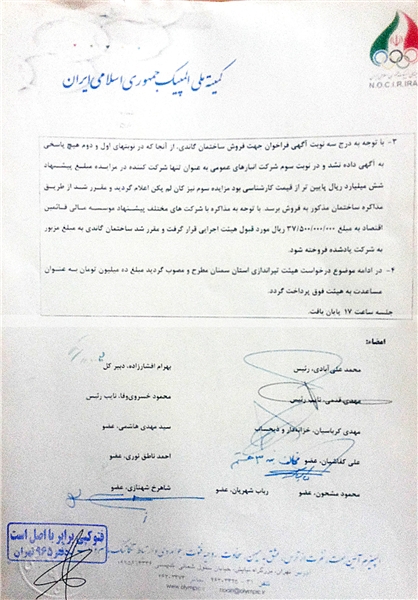 N.O.C.I.R.IRAN
کمیته ملی المپیک جمهوری اسلامی ایران
۳- با توجه به درج سه نوبت آگهی فراخوان جهت فروش ساختمان گاندی، از آنجا که در نوبتهای اول و دوم هیچ پاسخی
به آگهی داده نشد و در نوبت سوم شرکت انبارهای عمومی به عنوان تنها شرکت کننده در مزایده مبلغ پیشنهاد
شش میلیارد ریال پایین تر از قیمت کارشناسی بود مزایده سوم نیز کان لم یکن اعلام گردید و مقرر شد از طریق
مذاکره ساختمان مذکور به فروش برسد. با توجه به مذاکره با شرکت های مختلف پیشنهاد موسسه مالی فائمین
اقتصاد به مبلغ ۳۷/۵۰۰/۰۰۰/۰۰۰ ریال مورد قبول هیئت اجرایی قرار گرفت و مقرر شد ساختمان گاندی به مبلغ مزبور
به شرکت یادشده فروخته شود.
۴- در ادامه موضوع درخواست هیئت تیراندازی استان سمنان مطرح و مصوب گردید مبلغ ده میلیون تومان به عنوان
مساعدت به هیئت فوق پرداخت گردد.
جلسه ساعت ۱۷ پایان یافت.
اعضاء:
محمد علی آبادی، رئیس
بهرام افشارزاده، دبیر کل
مهدی قدمی، نایب رئیس
محمود خسروی‌وفا، نایب رئیس
مهدی کرباسیان، خزانه‌دار و ذیحساب
سید مهدی هاشمی، عضو
علی کفاشیان، عضو
احمد ناطق نوری، عضو
محمود مشحون، عضو
رباب شهریان، عضو
شاهرخ شهنازی، عضو
فتوکپی برابر با اصل است
دفتر ۹۶۵ تهران